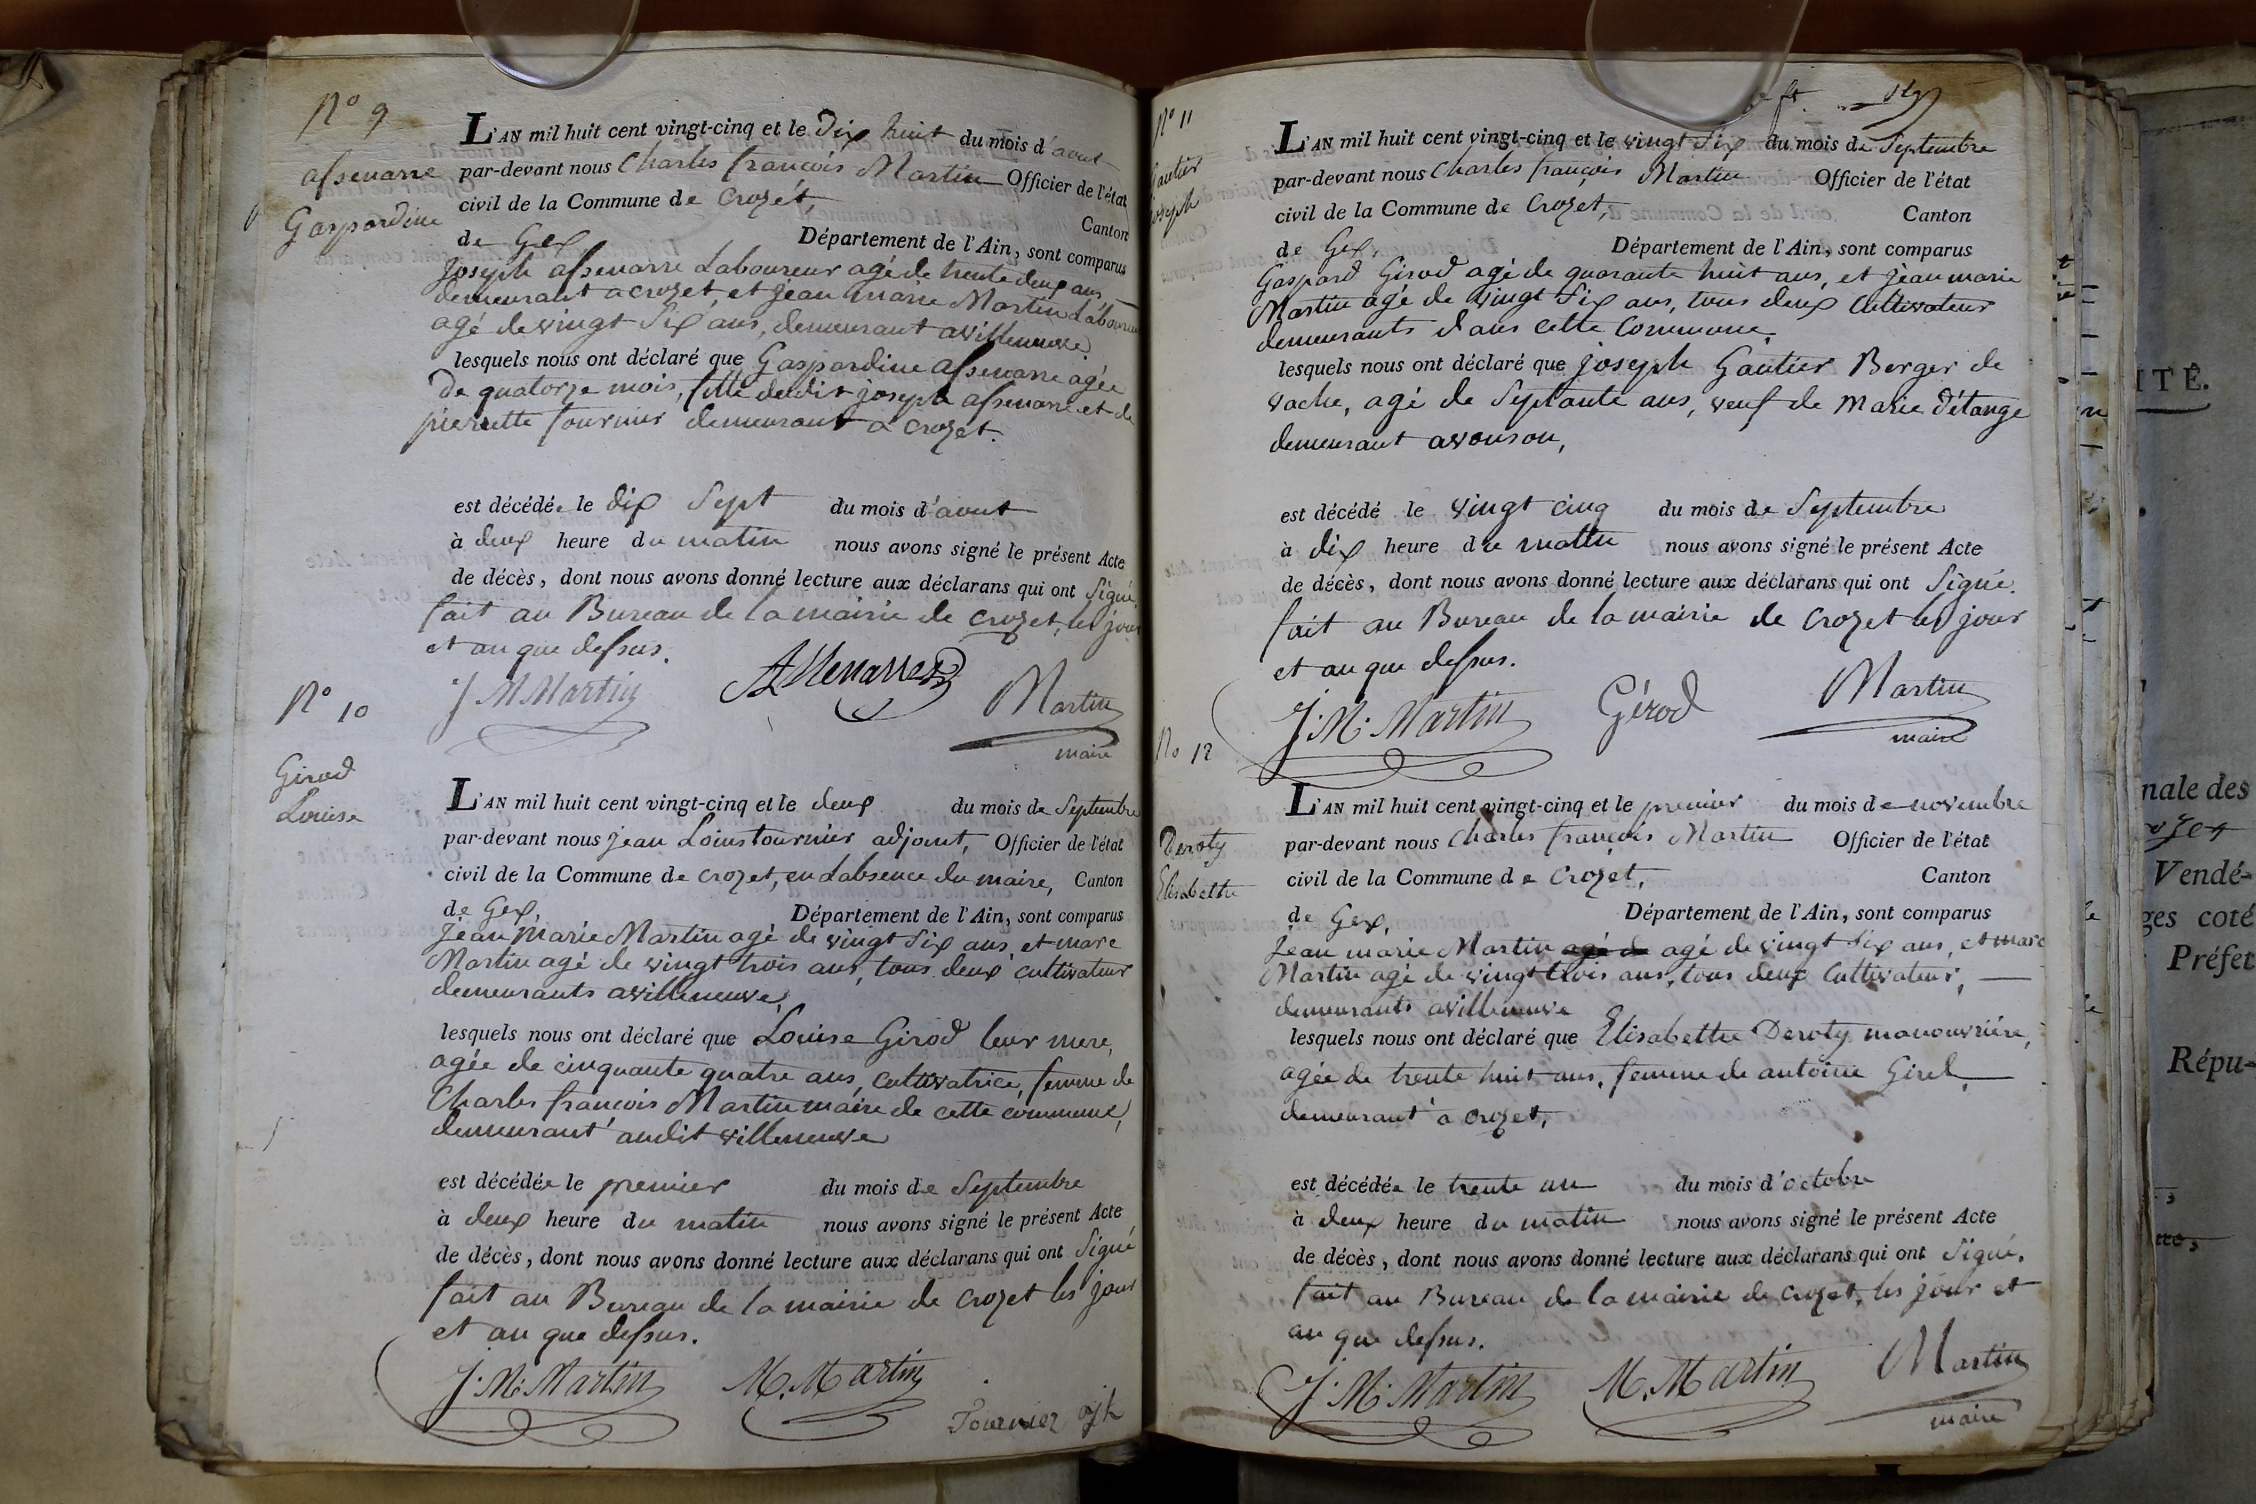 N° 9
assenarre
Gaspardine
L'AN mil huit cent vingt-cinq et le Dix huit du mois d'aout
par-devant nous Charles françois Martin Officier de l'état
civil de la Commune de Crozet, Canton
de Gex, Département de l'Ain, sont comparus
Joseph assenarre Laboureur agé de trente deux ans
demeurant a crozet, et jean marie Martin Laboureur
agé de vingt Six ans, demeurant a villeneuve
lesquels nous ont déclaré que Gaspardine assenarre agée
de quatorze mois, fille dudit joseph assenarre et de
pierrette fournier demeurant a crozet.
est décédée le dix Sept du mois d'aout
à deux heure du matin nous avons signé le présent Acte
de décès, dont nous avons donné lecture aux déclarans qui ont Signé.
fait au Bureau de la mairie de crozet, les jour
et an que dessus.
J M Martin Assenarre Martin
maire
N° 10
Girod
Louise
L'AN mil huit cent vingt-cinq et le deux du mois de Septembre
par-devant nous jean Louis tournier adjoint, Officier de l'état
civil de la Commune de crozet, en Labsence du maire, Canton
de Gex, Département de l'Ain, sont comparus
jean Marie Martin agé de vingt Six ans, et marc
Martin agé de vingt trois ans, tous deux cultivateur
demeurants a villeneuve,
lesquels nous ont déclaré que Louise Girod leur mere,
agée de cinquante quatre ans, cultivatrice, femme de
Charles françois Martin maire de cette commune,
demeurant audit villeneuve
est décédée le premier du mois de Septembre
à deux heure du matin nous avons signé le présent Acte
de décès, dont nous avons donné lecture aux déclarans qui ont Signé
fait au Bureau de la mairie de crozet les jour
et an que dessus.
J. M. Martin M. Martin
Tournier ajt
N° 11
Gautier
Joseph
L'AN mil huit cent vingt-cinq et le vingt Six du mois de Septembre
par-devant nous Charles françois Martin Officier de l'état
civil de la Commune de Crozet, Canton
de Gex, Département de l'Ain, sont comparus
Gaspard Girod agé de quarante huit ans, et jean marie
Martin agé de vingt Six ans, tous deux Cultivateur
demeurants dans cette Commune,
lesquels nous ont déclaré que joseph Gautier Berger de
vache, agé de Septante ans, veuf de Marie détange
demeurant avouson,
est décédé le vingt cinq du mois de Septembre
à dix heure du mattin nous avons signé le présent Acte
de décès, dont nous avons donné lecture aux déclarans qui ont Signé.
fait au Bureau de la mairie de Crozet les jour
et an que dessus.
J. M. Martin Gérod Martin
maire
No 12
Deroty
Elisabethe
L'AN mil huit cent vingt-cinq et le premier du mois de novembre
par-devant nous Charles françois Martin Officier de l'état
civil de la Commune de Crozet, Canton
de Gex, Département de l'Ain, sont comparus
Jean marie Martin agé de agé de vingt Six ans, et marc
Martin agé de vingt trois ans, tous deux Cultivateur,
demeurants a villeneuve
lesquels nous ont déclaré que Elisabethe Deroty manouvriére,
agée de trente huit ans, femme de antoine Girel,
demeurant a crozet,
est décédée le trente un du mois d'octobre
à deux heure du matin nous avons signé le présent Acte
de décès, dont nous avons donné lecture aux déclarans qui ont Signé.
fait au Bureau de la mairie de Crozet, les jour et
an que dessus.
J. M. Martin M. Martin Martin
maire
ITÉ.
nale des
Vendé-
ges coté
Préfet
Répu-